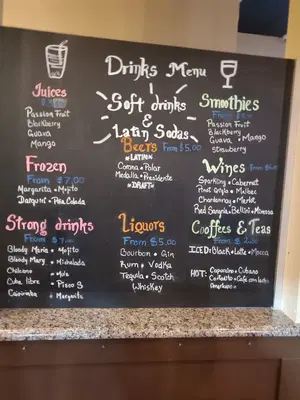 Drinks Menu
Soft drinks
&
Latin Sodas
Juices
Passion Fruit
Blackberry
Guava
Mango
Frozen
From $7.00
Margarita • Mojito
Daiquiri • Piña Colada
Strong drinks
From $7.00
Bloody Maria • Mojito
Bloody Mary • Michelada
Chilcano
Cuba libre • Pisco S
Caipirinha • Margarita
Beers
From $5.00
#LATIN#
Corona • Polar
Medalla • Presidente
#DRAFT#
Liquors
From $5.00
Bourbon • Gin
Rum • Vodka
Tequila • Scotch
Whiskey
Smoothies
From
Passion Fruit
Blackberry
Guava • Mango
Strawberry
Wines
From
Sparkling • Cabernet
Pinot Grigio • Malbec
Chardonnay • Merlot
Red Sangria • Bellini • Mimosa
Cooffees & Teas
From $
ICED: Black • Latte • Mocca
HOT: Capuccino • Cubano
Cortadito • Café con leche
Americano